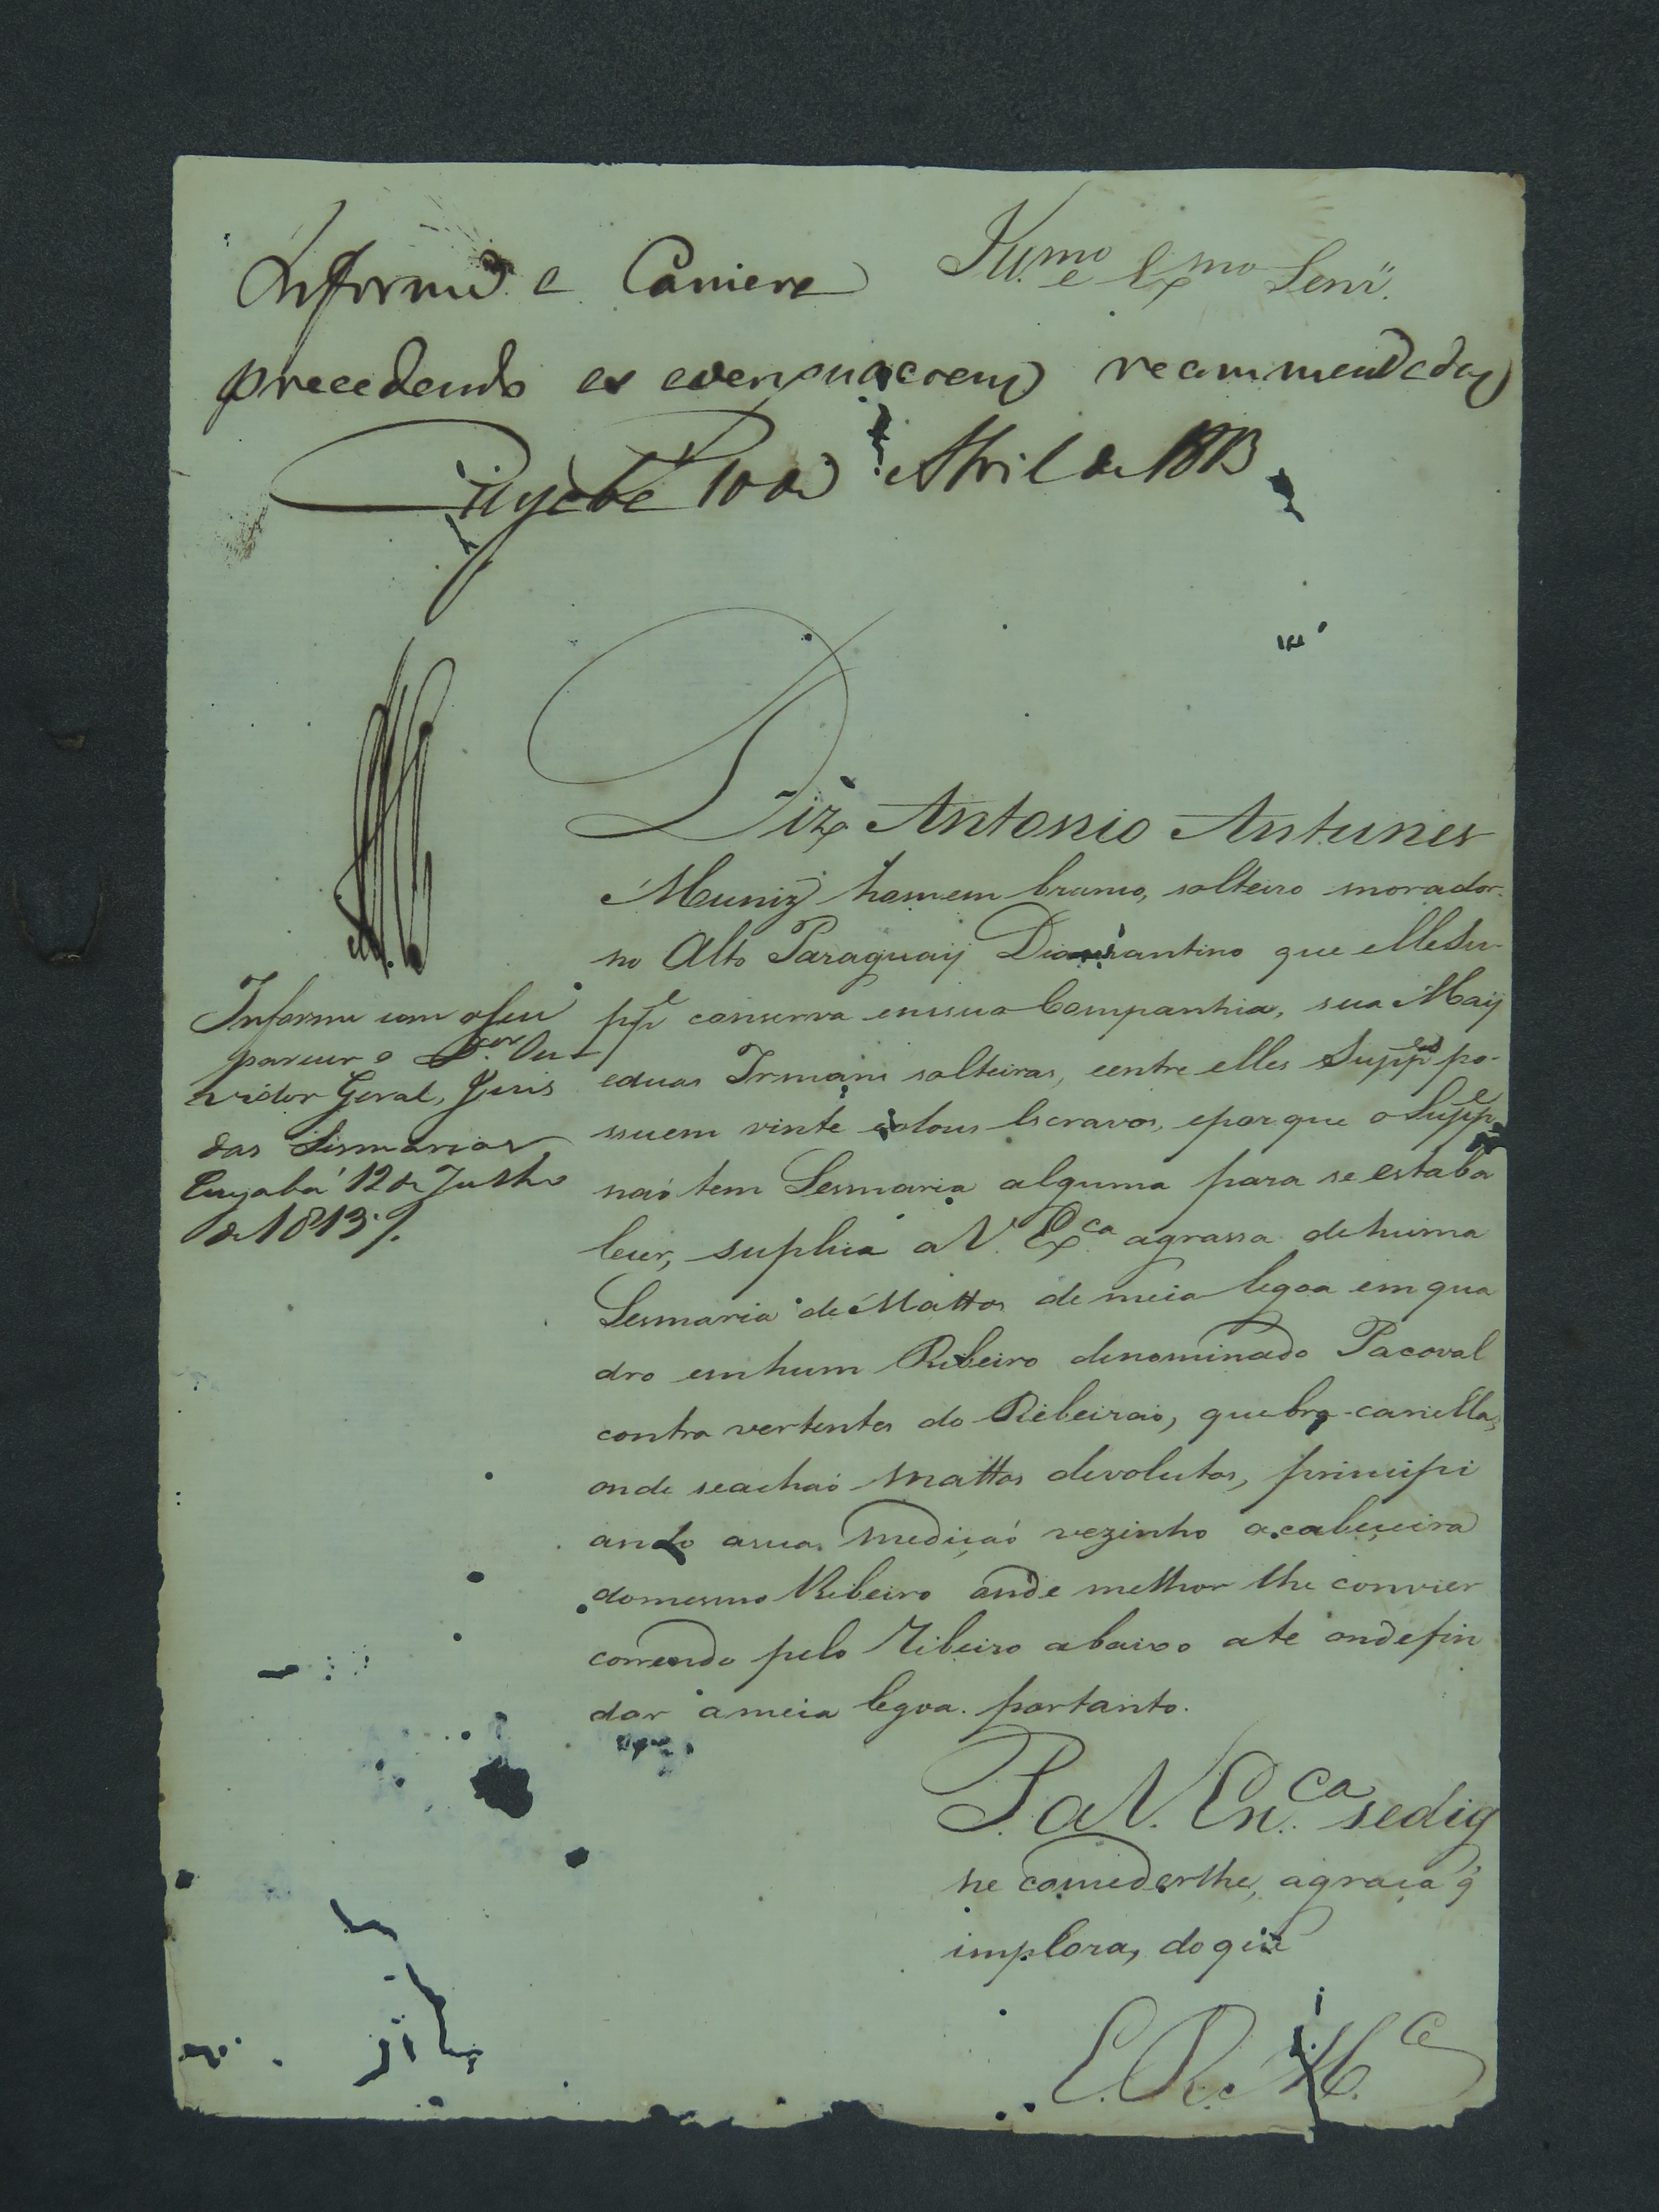 Informe a Camera
precedendo as averiguacoens recommendadas
Cuyabá 10 de Abril de 1813
Illmo. e Exmo. Senr.
Informe com o seu
parecer o Dor. Ou-
vidor Geral, Juis
das Sismarias
Cuyabá 12 de Julho
de 1813 /.
Diz Antonio Antunes
Muniz homem branco, solteiro morador
no Alto Paraguaÿ Diamantino que elle Su-
ppe conserva em sua Companhia, sua Maÿ
e duas Irmans solteiras, e entre elles Suppes po-
ssuem vinte e dous Escravos, e por que o Suppe
naó tem Sesmaria alguma para se estaba
lecer, suplica a V. Exca. a grassa de huma
Sesmaria de Mattos de meia legoa em qua
dro em hum Ribeiro denominado Pacoval
contra vertentes do Ribeiraó, quebra-canellas,
onde se achaó mattos devolutos, principi
ando a sua mediçaó vezinho a cabeceira
do mesmo Ribeiro onde melhor lhe convier
correndo pelo Ribeiro abaixo ate onde fin
dar a meia legoa. portanto.
P. a V. Exca. se dig
ne concederlhe, a graça q̃
implora, do que
E. R. Mce